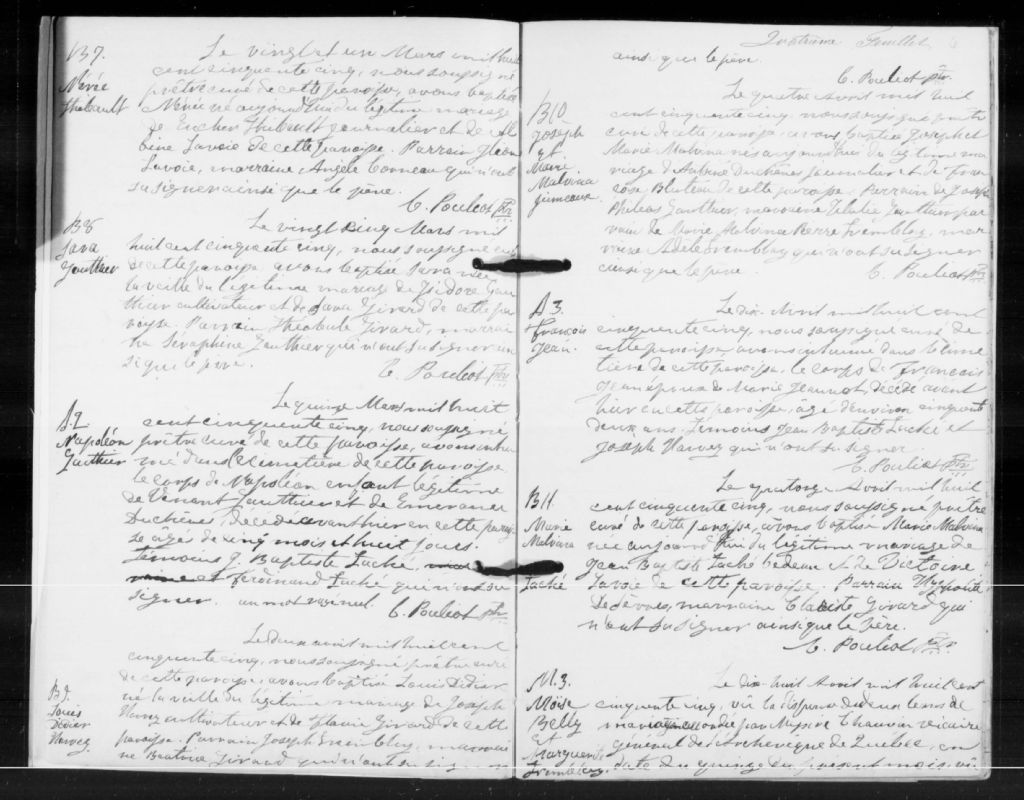 B7.
Nérée
Thibault
Le vingt et un Mars mil huit
cent cinquante cinq, nous soussigné
prêtre curé de cette paroisse, avons baptisé
Nérée né aujourd'hui du légitime mariage
de Eucher Thibault journalier et de
Savoie de cette paroisse. Parrain
Savoie, marraine Angèle Comeau qui n'ont
su signer ainsi que le père.
C. Pouliot ptre
B8
Sara
Gauthier
Le vingt cinq Mars mil
huit cent cinquante cinq, nous soussigné curé
de cette paroisse avons baptisé Sara née
la veille du légitime mariage de Isidore Gau
thier cultivateur et de Sara Girard de cette pa
roisse. Parrain Théobule Girard, marrai
ne Séraphine Gauthier qui n'ont su signer ain
si que le père.
C. Pouliot ptre
S.2
Napoléon
Gauthier
Le quinze Mars mil huit
cent cinquante cinq, nous soussigné
prêtre curé de cette paroisse, avons inhu
mé dans le cimetière de cette paroisse
le corps de Napoléon enfant légitime
de Venant Gauthier et de Emerance
Duchènes, décédé avant hier en cette parois
se agés de cinq mois et huit jours.
Témoins J. Baptiste Laché,
et ferdinand Laché qui n'ont su
signer. un mot rayé nul. C. Pouliot ptre
B9.
Louis
Didier
Harvey
Le deux avril mil huit cent
cinquante cinq, nous soussigné prêtre curé
de cette paroisse, avons baptisé Louis Didier
né la veille du légitime mariage de Joseph
Harvey cultivateur et de Flavie Girard de cette
paroisse. Parrain Joseph Tremblay, marrai
ne Béatrice Girard qui n'ont su signer
Quatrième Feuillet
ainsi que le père.
C. Pouliot ptre
B10
Joseph
et
Marie
Malvina
jumeaux
Le quatre Avril mil huit
cent cinquante cinq, nous soussigné prêtre
curé de cette paroisse, avons baptisé Joseph et
Marie Malvina nés aujourd'hui du légitime ma
riage de Duchènes Journalier et de
Bluteau de cette paroisse. Parrain de Joseph
Philéas Gauthier, marraine Gauthier par
rain de Marie Malvina Pierre Tremblay, mar
raine Adèle Tremblay qui n'ont su signer
ainsi que le père. C. Pouliot ptre
S 3.
François
Jean.
Le dix Avril mil huit cent
cinquante cinq, nous soussigné curé de
cette paroisse avons inhumé dans le cime
tière de cette paroisse, le corps de François
Jean époux de Marie Jeannot, décédé avant
hier en cette paroisse, âgé d'environ cinquante
deux ans. Témoins Jean Baptiste Laché et
Joseph Harvey qui n'ont su signer
C. Pouliot ptre
B11.
Marie
Malvina
Laché
Le quatorze Avril mil huit
cent cinquante cinq, nous soussigné prêtre
curé de cette paroisse, avons baptisé Marie Malvina
née aujourd'hui du légitime mariage de
Jean Baptiste Laché bedeau et de Victoire
Savoie de cette paroisse. Parrain Hyppolite
marraine Girard qui
n'ont su signer ainsi que le Père.
C. Pouliot Ptre
M.3.
Moïse
Belly
Et
Marguerite
Tremblay
Le dix huit Avril mil huit cent
cinquante cinq, vû la dispense de deux bans de
mariage accordée par Messire Chauvin vicaire
général de l'Archevêque de Québec, en
date du quinze du présent mois, vû